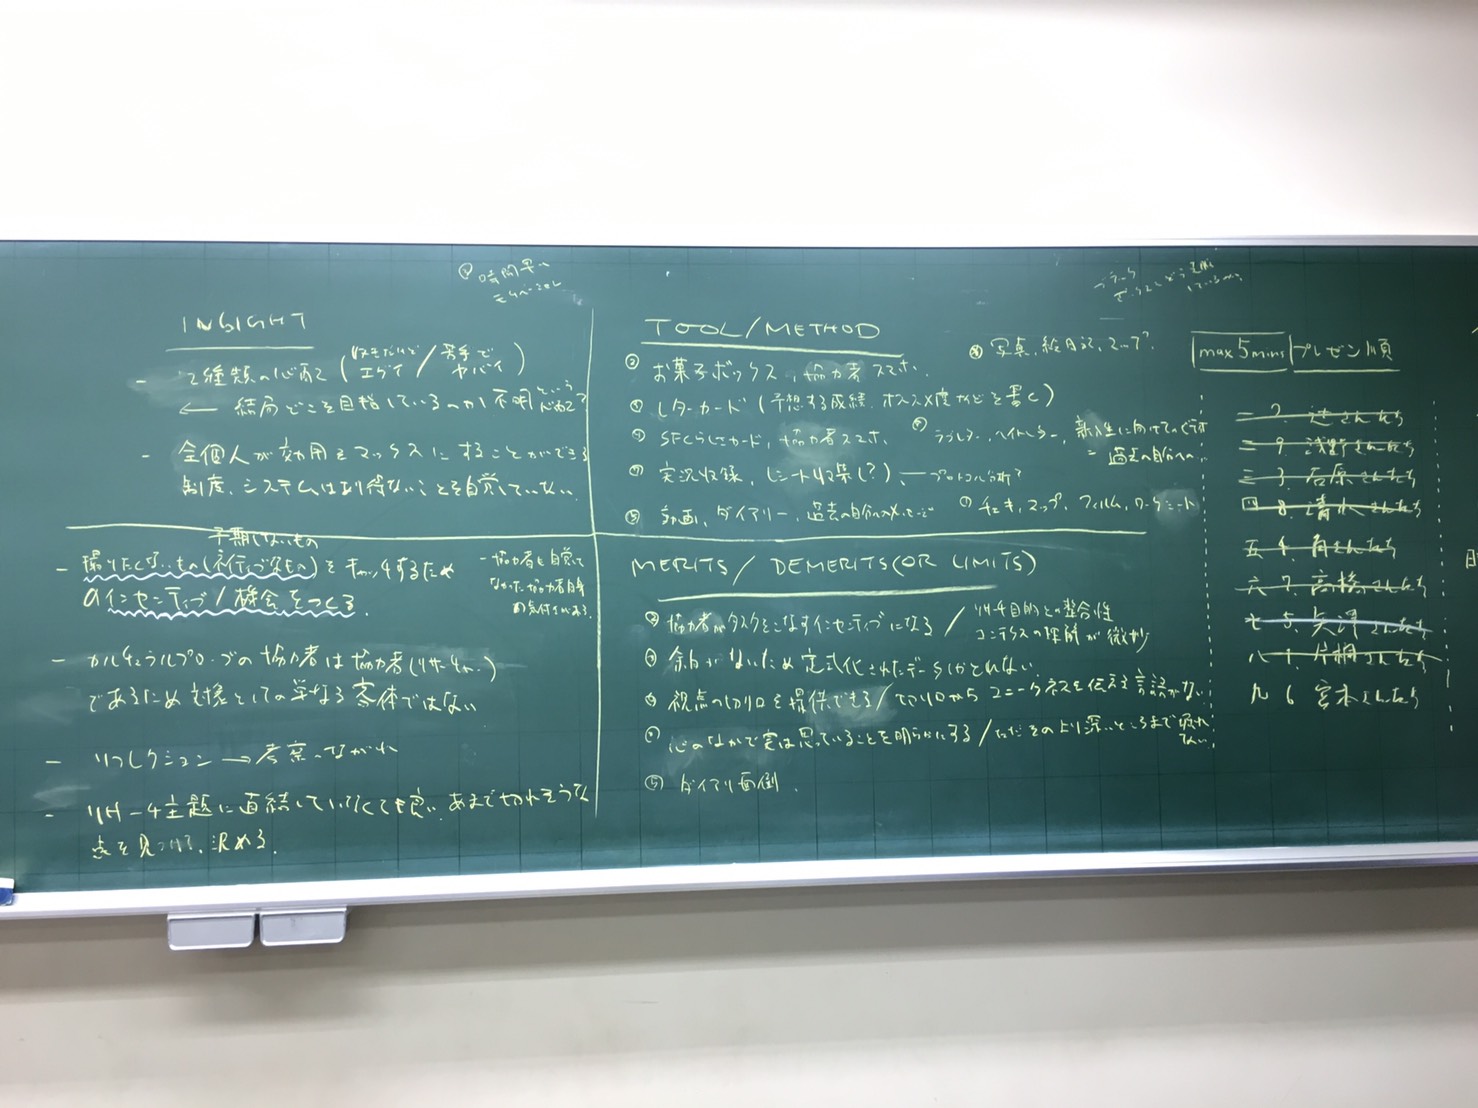 時間
INSIGHT
- 2種類の心配 ( / 苦手でヤバイ)
← 結局どこを目指しているのか不明という
- 全個人が効用をマックスにすることができる
制度、システムはあり得ないことを自覚していない
予期しないもの
- 撮りたくないもの(ネガティブなもの)をキャッチするため
のインセンティブ/機会をつくる.
- 協力者も自覚して
なかった協力者自身
の気付きがある.
- カルチュラルプローブの協力者は協力者(リサーチャー)
であるため対象としての単なる客体ではない
- リフレクション → 考察のながれ
- リサーチ主題に直結していなくても良い、あくまで切れそうな
点を見つける、決める.
TOOL/METHOD
② お菓子ボックス、協力者スマホ.
写真、絵日記、マップ?
レターカード(予想する成績、オススメ度などを書く)
SFCらしさカード、協力者スマホ、
ラブレター、ヘイトレター、新入生に向けての
= 過去の自分への
実況収録、レシート収集(?)、— プロトコル分析?
⑤ 動画、ダイアリー、過去の自分へのメッセージ
チェキ、マップ、フィルム、ワークシート
MERITS/ DEMERITS(OR LIMITS)
② 協力者がタスクをこなすインセンティブになる / リサーチ目的との整合性
コンテクスの理解が微妙
余白がないため定式化されたデータしかとれない
視点の切り口を提供できる/ 切り口から ユニークネスを伝える言語がない
心のなかで実は思っていることを明らかにする/ただそのより深いところまで
ない
⑤ ダイアリ面倒.
max 5mins プレゼン順
二 9. 浅野さんたち
三 3. 石原さんたち
四 8. 清水さんたち
五 4.
六 7. 高橋さんたち
七 5. 矢澤さんたち
八 1. 片桐さんたち
九 6 宮本さんたち